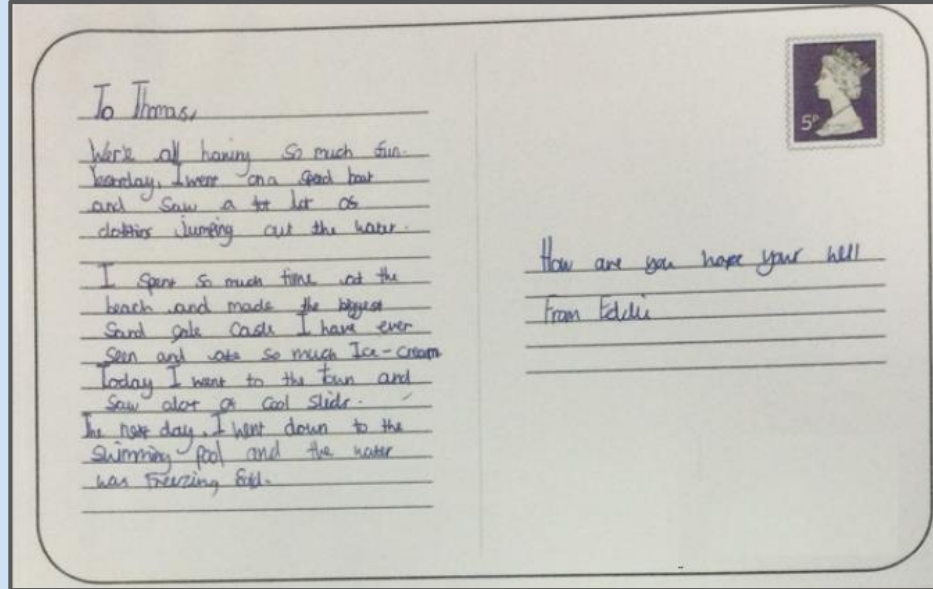 To Thomas,
We're all having so much fun.
I went on a speed boat
and saw a lot of
jumping out the water.
I spent so much time at the
beach and made the biggest
Sand castle I have ever
seen and ate so much Ice-cream
Today I went to the town and
saw alot of cool slide.
The next day, I went down to the
swimming pool and the water
was freezing
5P
How are you hope your well
From Eddie